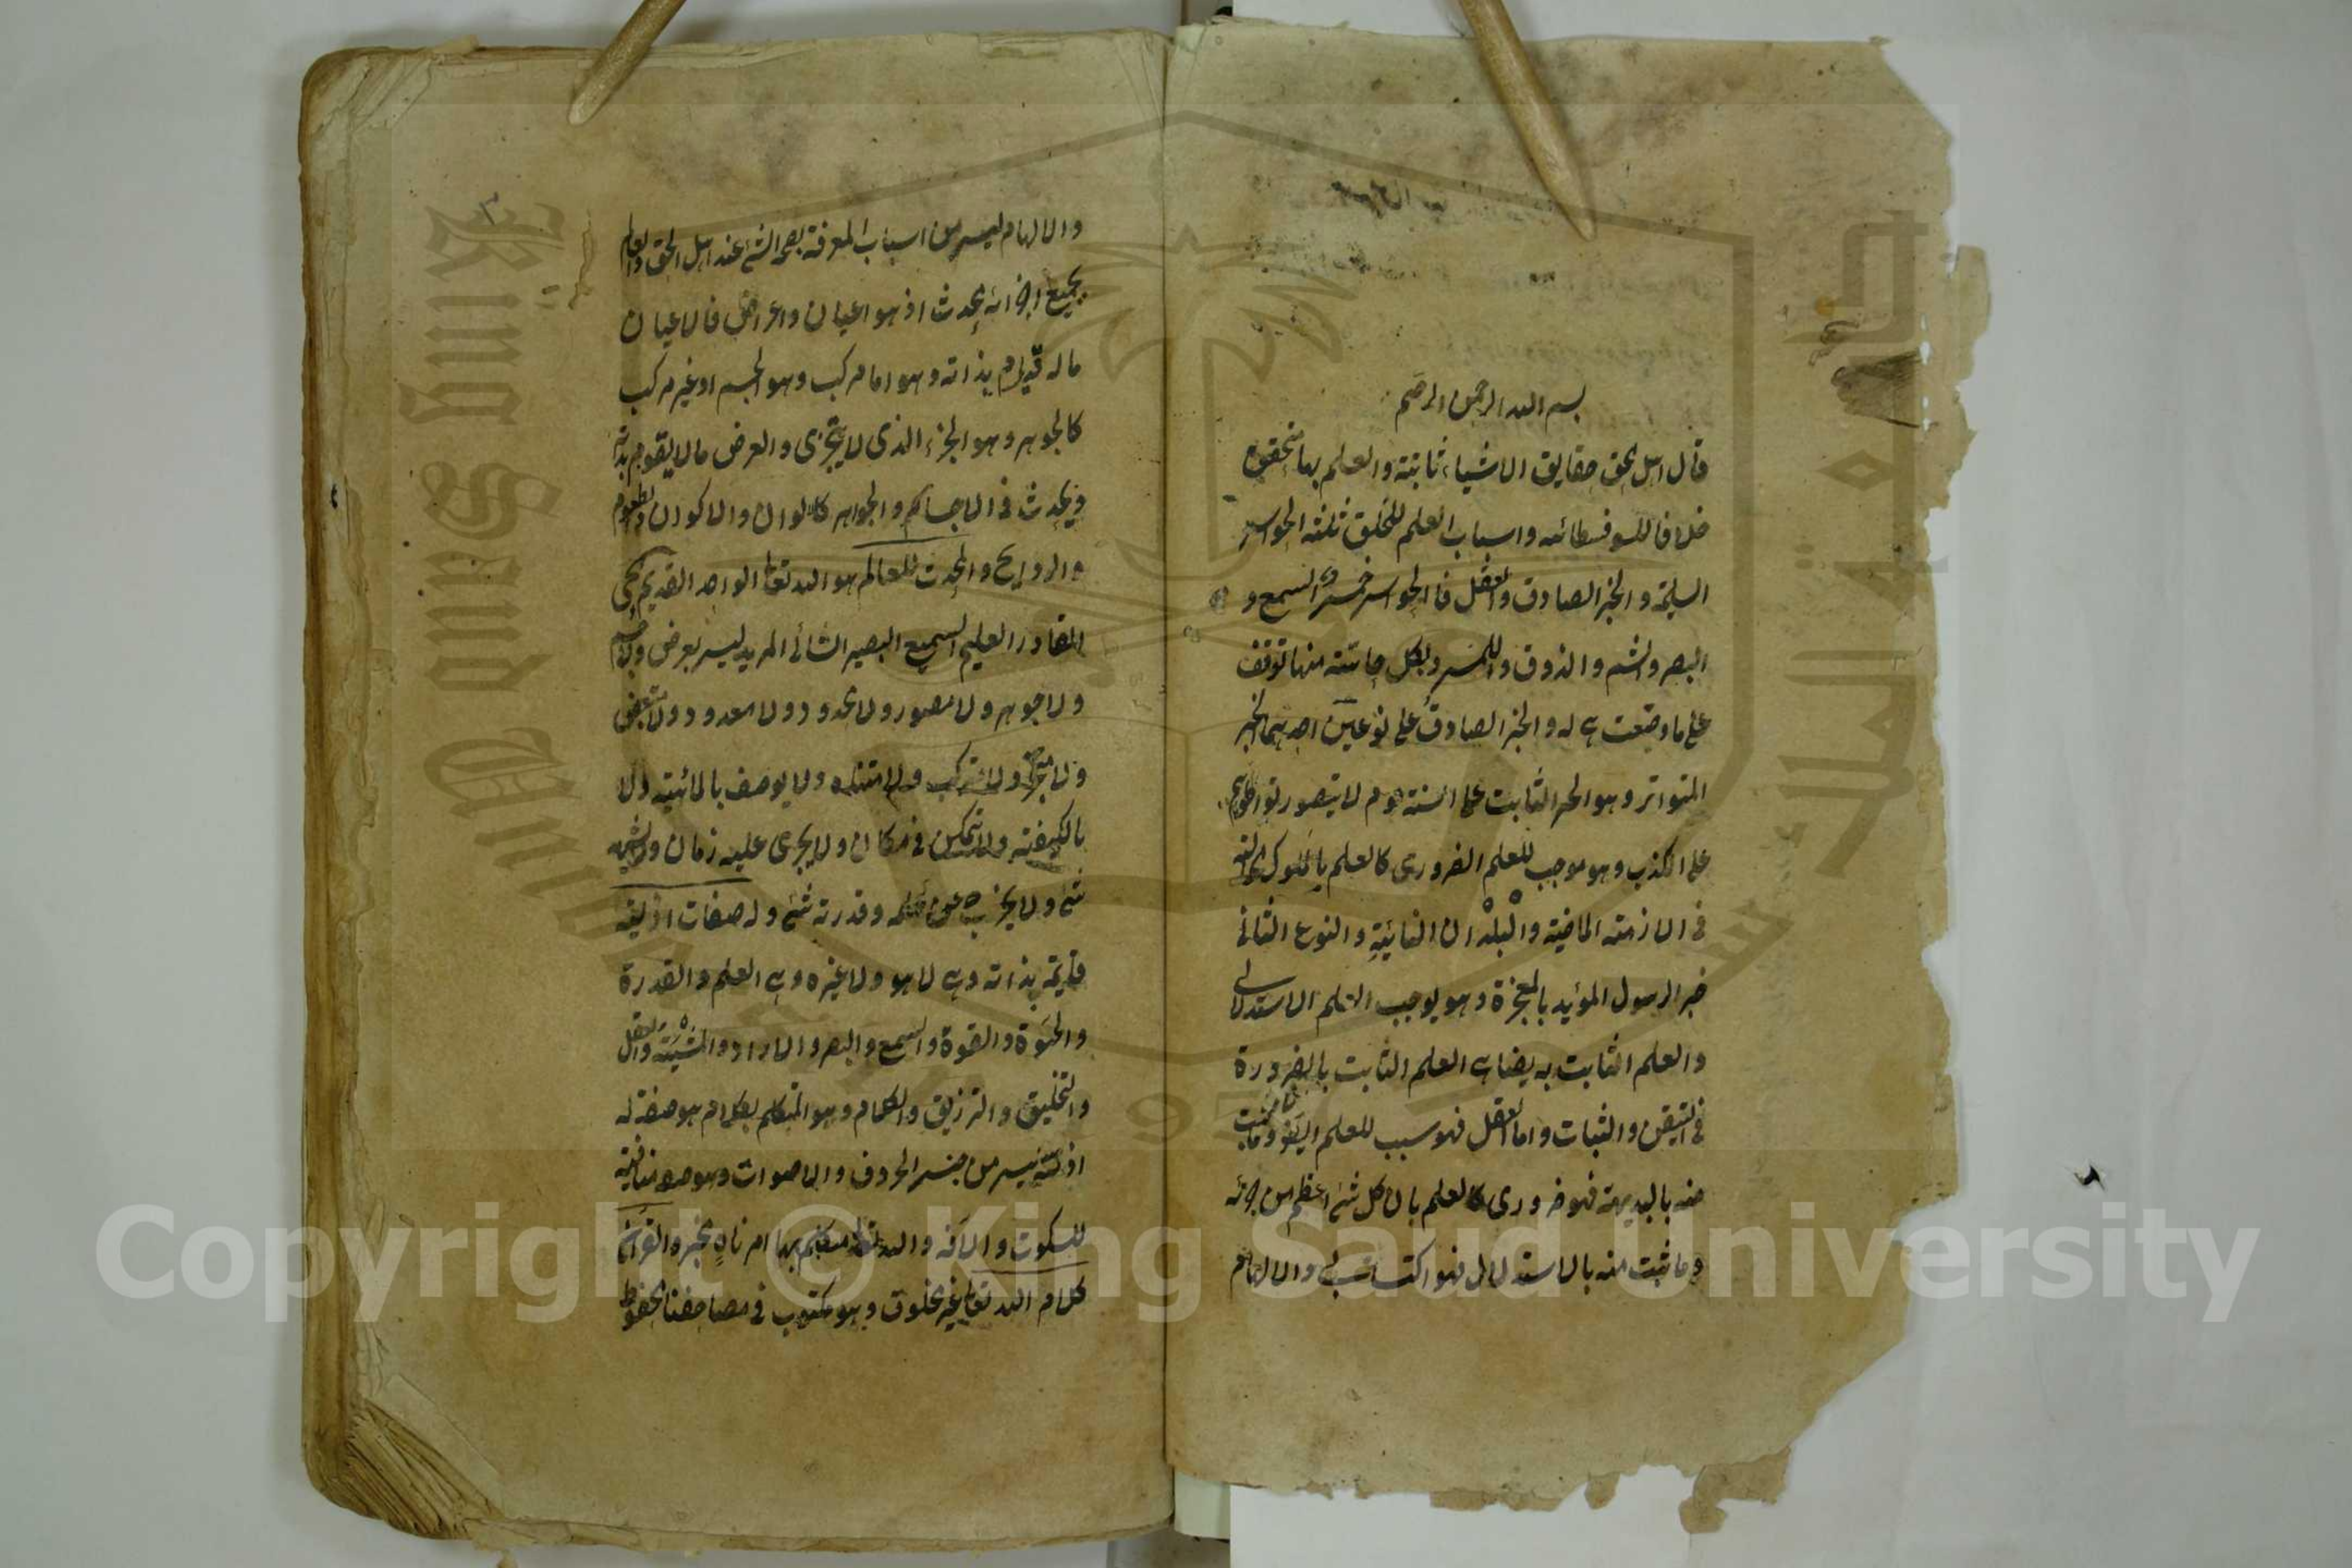 بسم الله الرحمن الرحيم
قال اهل الحق حقايق الاشياء ثابتة والعلم بها متحقق
خلافا للسوفسطائيه واسباب العلم للخلق ثلثة الحواس
السليمة والخبر الصادق والعقل فالحواس خمس السمع و
البصر والشم والذوق واللمس وبكل حاسة منها توقف
على ما وضعت هى له والخبر الصادق على نوعين احدهما الخبر
المتواتر وهو الخبر الثابت على السنة قوم لا يتصور تواطؤهم
على الكذب وهو موجب للعلم الضرورى كالعلم بالملوك الخالية
فى الازمنة الماضية والبلدان النائية والنوع الثانى
خبر الرسول المؤيد بالمعجزة وهو يوجب العلم الاستدلالى
والعلم الثابت به يضاهى العلم الثابت بالضرورة
فى التيقن والثبات واما العقل فهو سبب للعلم ايضا وما ثبت
منه بالبديهة فهو ضرورى كالعلم بان كل شئ اعظم من جزئه
وما ثبت منه بالاستدلال فهو اكتسابى والالهام
٣
والالهام ليس من اسباب المعرفة بصحة الشئ عند اهل الحق والعالم
بجميع اجزائه محدث اذ هو اعيان واعراض فالاعيان
ما له قيام بذاته وهو اما مركب وهو الجسم او غير مركب
كالجوهر وهو الجزء الذى لا يتجزى والعرض ما لا يقوم بذاته
ويحدث فى الاجسام والجواهر كالالوان والاكوان والطعوم
والروايح والمحدث للعالم هو الله تعالى الواحد القديم الحى
القادر العليم السميع البصير الشائى المريد ليس بعرض ولا جسم
ولا جوهر ولا مصور ولا محدود ولا معدود ولا متبعض
ولا متجز ولا مركب ولا متناه ولا يوصف بالمائية ولا
بالكيفية ولا يتمكن فى مكان ولا يجرى عليه زمان ولا يشبهه
شئ ولا يخرج عن علمه وقدرته شئ وله صفات ازلية
قايمة بذاته وهى لا هو ولا غيره وهى العلم والقدرة
والحيوة والقوة والسمع والبصر والارادة والمشيئة والفعل
والتخليق والترزيق والكلام وهو المتكلم بكلام هو صفة له
ازلية ليس من جنس الحروف والاصوات وهو صفة منافية
للسكوت والآفة والله تعالى متكلم بها امر ناه مخبر والقرآن
كلام الله تعالى غير مخلوق وهو مكتوب فى مصاحفنا محفوظ
Copyright © King Saud University